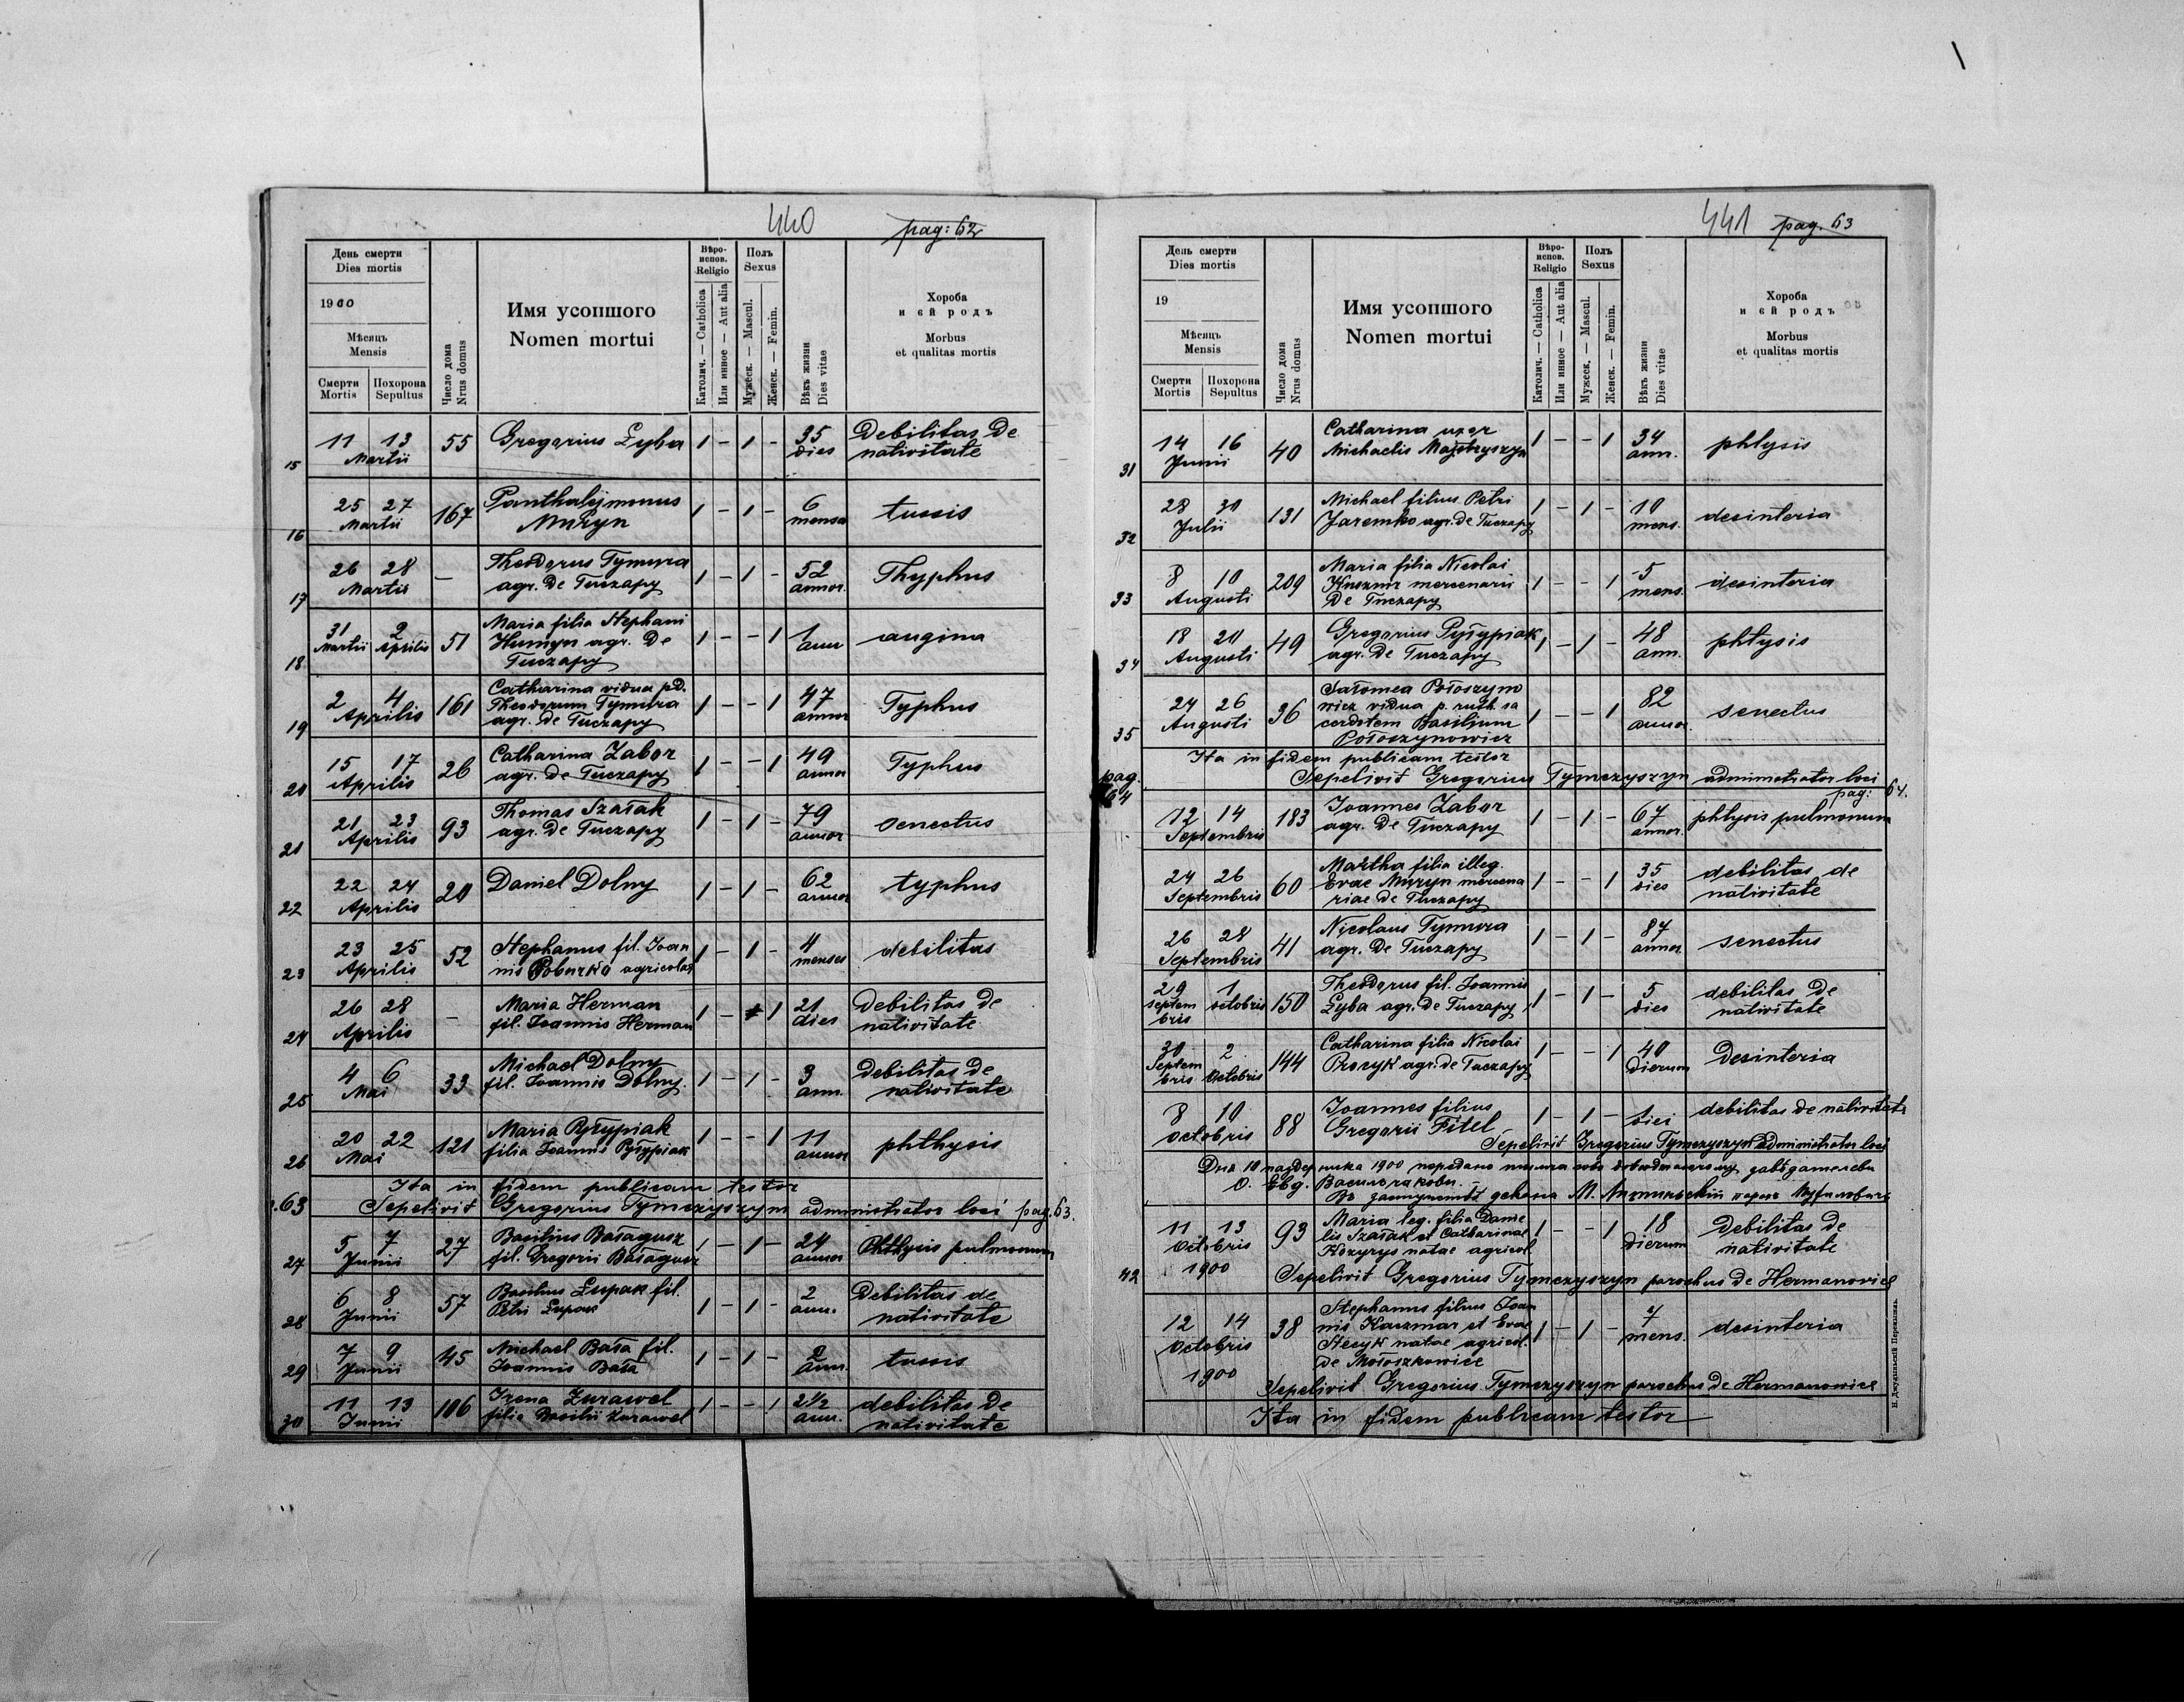 440
pag: 62
День смерти
Dies mortis
1900
Мѣсяць
Mensis
Смерти
Mortis
Похорона
Sepultus
Число дома
Nrus domus
Имя усопшого
Nomen mortui
Вѣро-
испов.
Religio
Католич. — Catholica
Или инное — Aut alia
Полъ
Sexus
Мужеск. — Mascul.
Женск. — Femin.
Вѣкъ жизни
Dies vitae
Хороба
и єй родъ
Morbus
et qualitas mortis
15 11 13 Martii 55 Gregorius Łyba 1 - 1 - 35 dies Debilitas de
nativitate
16 25 27 Martii 167 Panthalijmonus
Muryn 1 - 1 - 6 mensa tussis
17 26 28 Martii — Theodorus Tymura
agr. de Tuczapy 1 - 1 - 52 annor. Thyphus
18 31 Martii 2 Aprilis 51 Maria filia Stephani
Humyn agr. de
Tuczapy 1 - - 1 1 ann angina
19 2 4 Aprilis 161 Catharina vidua pd.
Theodorum Tymura
agr. de Tuczapy 1 - - 1 47 annor Typhus
20 15 17 Aprilis 26 Catharina Zabor
agr. de Tuczapy 1 - - 1 49 annor Typhus
21 21 23 Aprilis 93 Thomas Szałak
agr. de Tuczapy 1 - 1 - 79 annor senectus
22 22 24 Aprilis 20 Daniel Dolny 1 - 1 - 62 annor typhus
23 23 25 Aprilis 52 Stephanus fil. Joan
nis Poburka agricolae 1 - 1 - 4 menses debilitas
24 26 28 Aprilis — Maria Herman
fil. Joannis Herman 1 - 1 21 dies Debilitas de
nativitate
25 4 6 Mai 33 Michael Dolny
fil. Joannis Dolny. 1 - 1 - 3 ann. debilitas de
nativitate
26 20 22 Mai 121 Maria Pyłypiak
filia Joannis Pyłypiak 1 - - 1 11 annor phthysis
Ita in fidem publicam testor
.63 Sepelivit Gregorius Tymczyszyn administrator loci pag. 63.
27 5 7 Junii 27 Basilius Bałagusz
fil. Gregorii Bałagusz 1 - 1 - 24 annor Phthysis pulmonum
28 6 8 Junii 57 Basilius Łupak fil.
Petri Łupak 1 - 1 - 2 ann. Debilitas de
nativitate
29 7 9 Junii 45 Michael Bała fil.
Joannis Bała 1 - 1 - 2 ann. tussis
30 11 13 Junii 106 Irena Żurawel
filia Basilii Żurawel 1 - - 1 2 1/2 ann. debilitas de
nativitate
441
pag. 63
День смерти
Dies mortis
19
Мѣсяць
Mensis
Смерти
Mortis
Похорона
Sepultus
Число дома
Nrus domus
Имя усопшого
Nomen mortui
Вѣро-
испов.
Religio
Католич. — Catholica
Или инное — Aut alia
Полъ
Sexus
Мужеск. — Mascul.
Женск. — Femin.
Вѣкъ жизни
Dies vitae
Хороба
и єй родъ
Morbus
et qualitas mortis
31 14 16 Junii 40 Catharina uxor
Michaelis 1 - - 1 34 ann. phtysis
32 28 30 Julii 131 Michael filius Petri
Jaremko agr. de Tuczapy 1 - 1 - 10 mens. desinteria
33 8 10 Augusti 209 Maria filia Nicolai
mercenarii
de Tuczapy 1 - - 1 5 mens. desinteria
34 18 20 Augusti 49 Gregorius Pyłypiak
agr. de Tuczapy 1 - 1 - 48 ann. phtysis
35 24 26 Augusti 36 Sałomea Połoszyno
wicz vidua p. ruth. sa
cerdotem Basilium
Połoszynowicz 1 - - 1 82 annor. senectus
Ita in fidem publicam testor
pag. 64 Sepelivit Gregorius Tymczyszyn administrator loci
pag: 64.
12 14 Septembris 183 Joannes Zabor
agr. de Tuczapy 1 - 1 - 67 annor. phtysis pulmonum
24 26 Septembris 60 Martha filia illeg.
Evae Muryn mercena
riae de Tuczapy 1 - - 1 35 dies debilitas de
nativitate
26 28 Septembris 41 Nicolaus Tymura
agr. de Tuczapy 1 - 1 - 87 annor. senectus
29 Septem
bris 1 octobris 150 Theodorus fil. Joannis
Łyba agr. de Tuczapy 1 - 1 - 5 dies debilitas de
nativitate
30 Septem
bris 2 Octobris 144 Catharina filia Nicolai
Procyk agr. de Tuczapy 1 - - 1 40 dierum Desinteria
8 10 octobris 88 Joannes filius
Gregorii Fitel 1 - 1 - 1 diei debilitas de nativitate
Sepelivit Gregorius Tymczyszyn administrator loci
Дня 10 1900 передано завѣдателеви
о. Евг. Василькови.
Въ декана М.
11 13 Octobris 1900 93 Maria leg. filia Danie
lis Szałak et Catharinae
Kozyrys natae agricol. 1 - - 1 18 dierum Debilitas de
nativitate
42 Sepelivit Gregorius Tymczyszyn parochus de Hermanowice
12 14 Octobris 1900 38 Stephanus filius Joan
nis Kaczmar et Evae
Stecyk natae agricol.
de Mołoszkowice 1 - 1 - 7 mens. desinteria
Sepelivit Gregorius Tymczyszyn parochus de Hermanowice
Ita in fidem publicam testor
Н. Джулиньскій Перемышль.